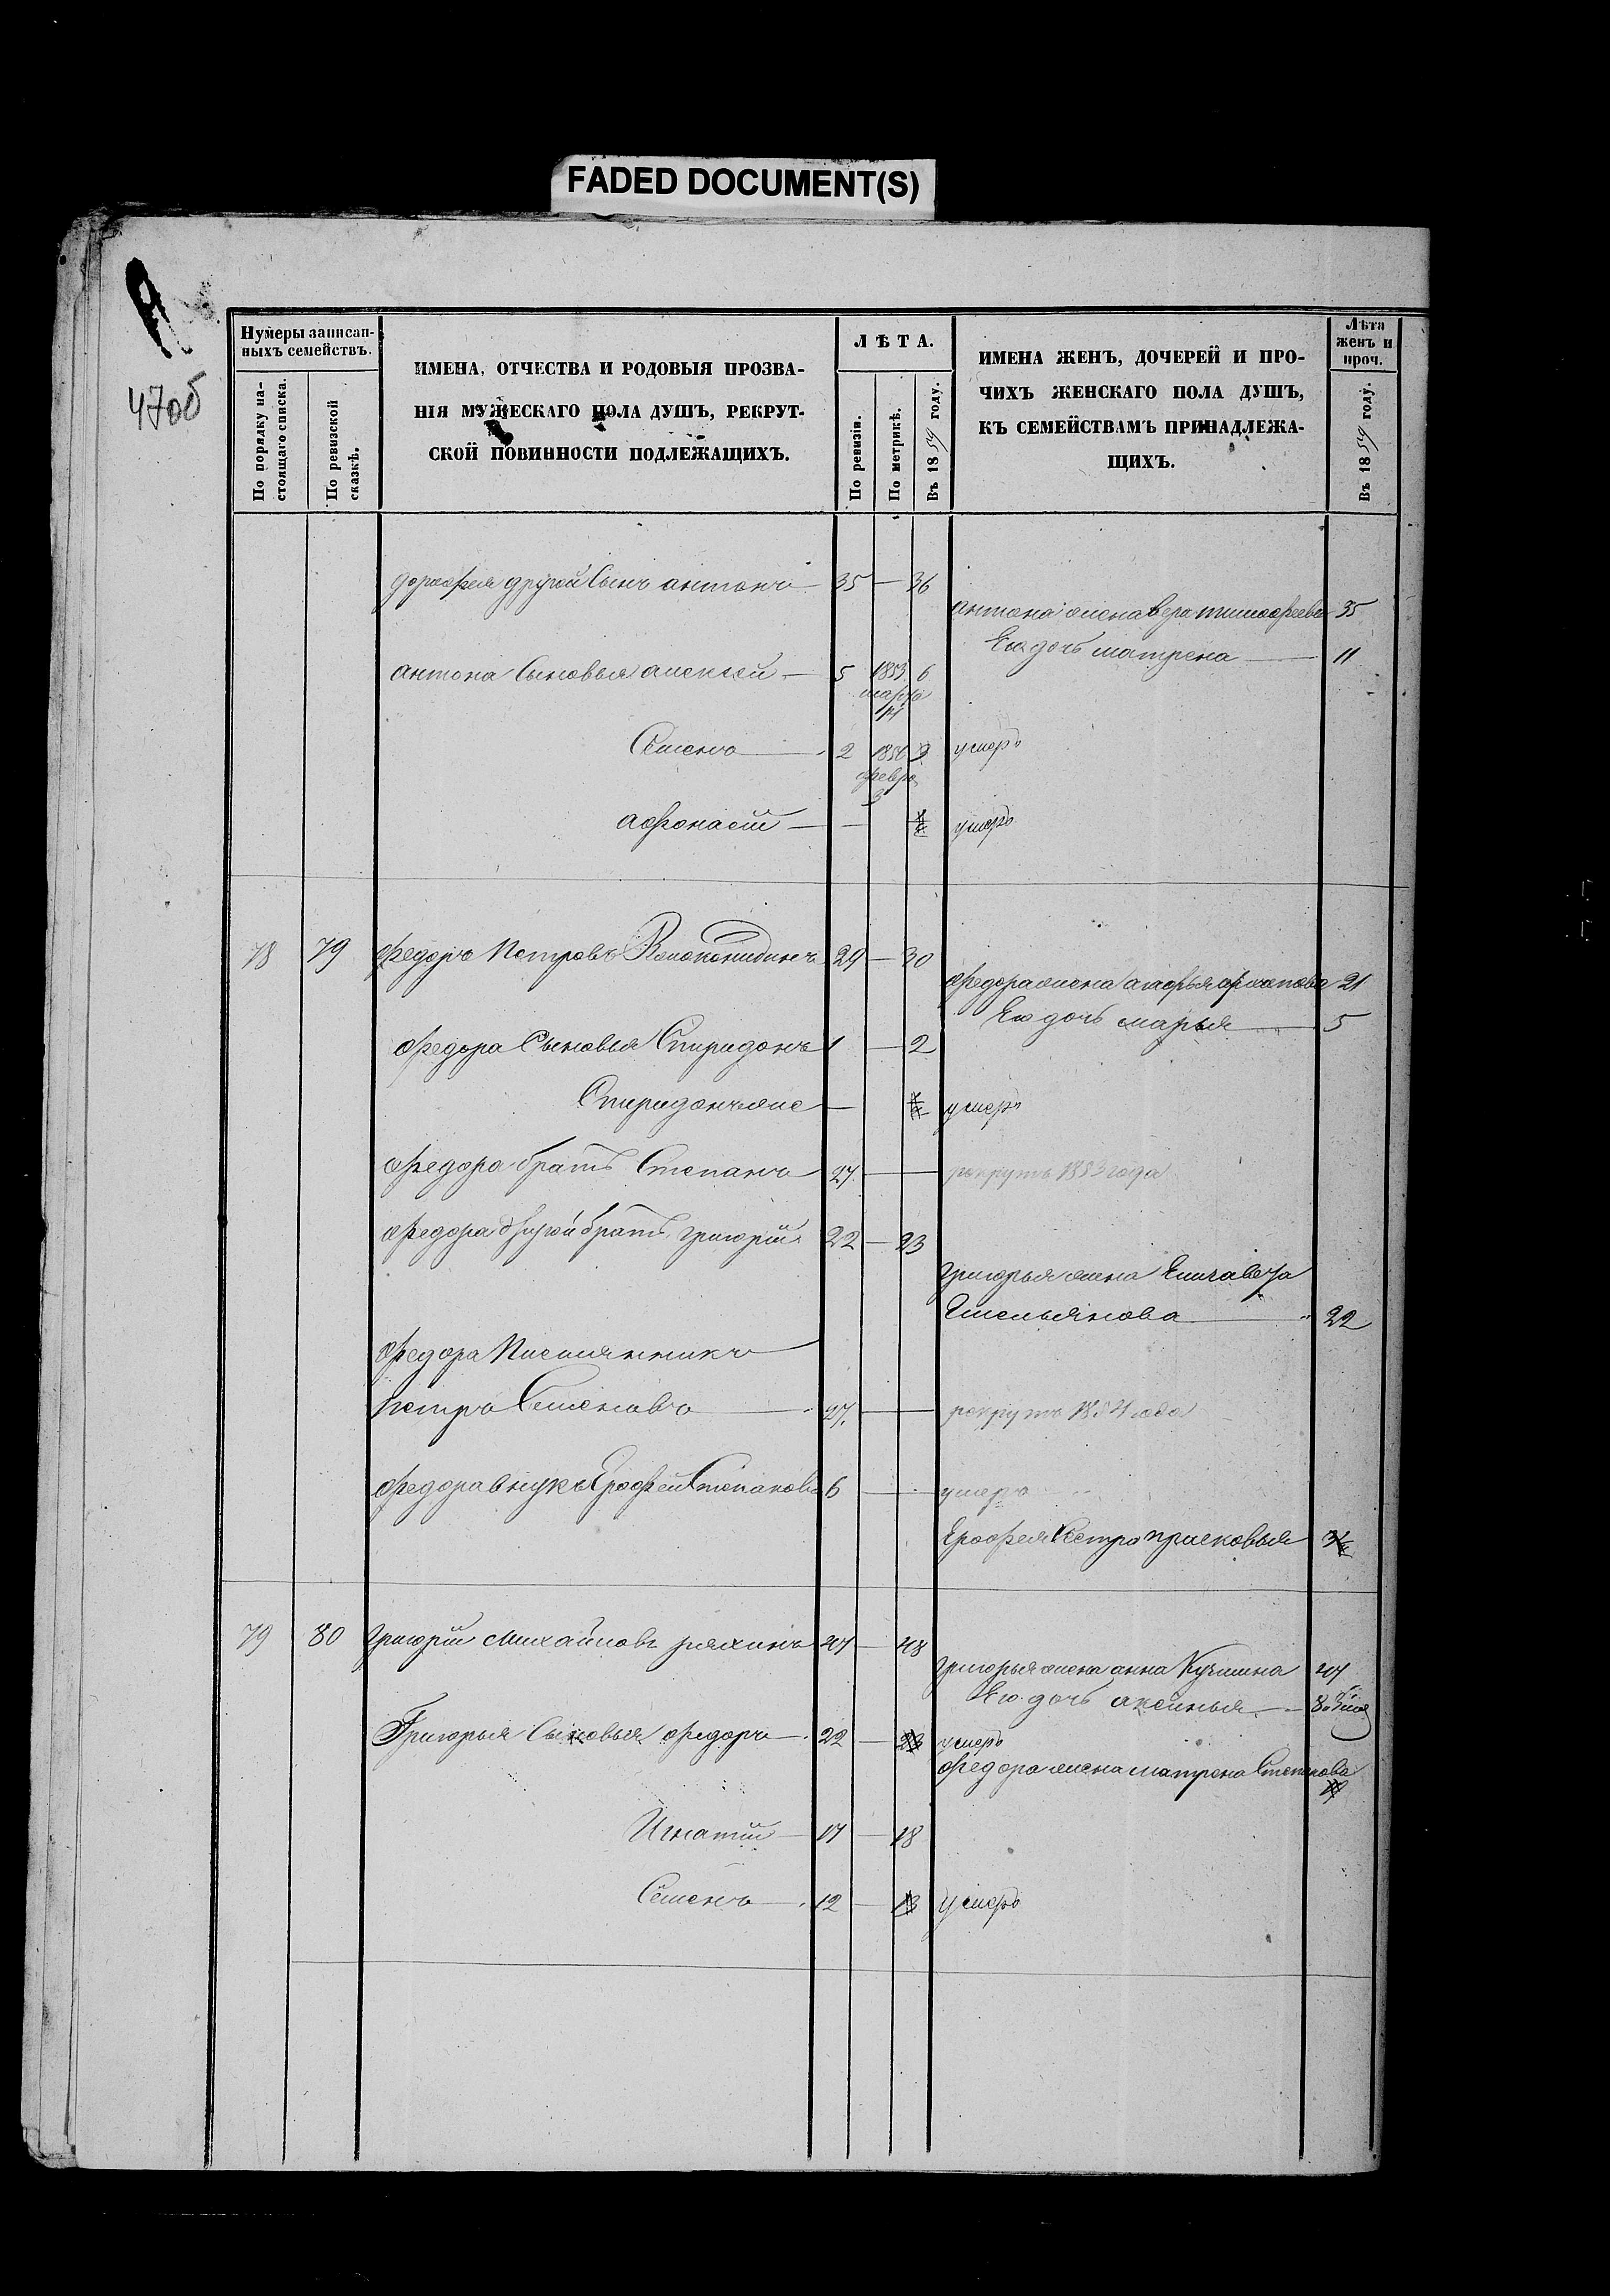 FADED DOCUMENT(S)
47об
Нумеры записан-
ныхъ семействъ.
По порядку на-
стоящаго списка.
По ревизской
сказкѣ.
ИМЕНА, ОТЧЕСТВА И РОДОВЫЯ ПРОЗВА-
НІЯ МУЖЕСКАГО ПОЛА ДУШЪ, РЕКРУТ-
СКОЙ ПОВИННОСТИ ПОДЛЕЖАЩИХЪ.
ЛѢТА.
По ревизіи.
По метрикѣ.
Въ 1859 году.
ИМЕНА ЖЕНЪ, ДОЧЕРЕЙ И ПРО-
ЧИХЪ ЖЕНСКАГО ПОЛА ДУШЪ,
КЪ СЕМЕЙСТВАМЪ ПРИНАДЛЕЖА-
ЩИХЪ.
Лѣта
женъ и
проч.
Въ 1859 году.
дорофея другой Сынъ антонъ 35 — 36
антона жена вера тимофеева 35
Ею дочь матрена 11
антона Сыновья алексей 5 1853 6
марта
14
Семенъ 2 1856 умеръ
февра
3
афонасий — умеръ
78 79 федоръ Петровъ 29 — 30
федора жена 21
Ею дочь марья 5
федора Сыновья Спиридонъ 1 — 2
Спиридонъже — умеръ
федора братъ Степанъ 27 — рекрутъ 1853 года
федора другой братъ григорій 22 — 23
григорья жена Елизавета
Емельянова 22
федора Племянникъ
петръ Семеновъ 27 — рекрутъ года
федора внукъ Ерофей Степановъ 6 — умеръ
Ерофея Сестра прасковья
79 80 григорій Михайловъ 47 — 48
григорья жена анна Кузмина 47
Ею дочь аксинья
Григорья Сыновья федоръ 22 — 23 умеръ
федора жена матрена Степанова
Игнатий 17 — 18
Семенъ 12 — 13 умеръ